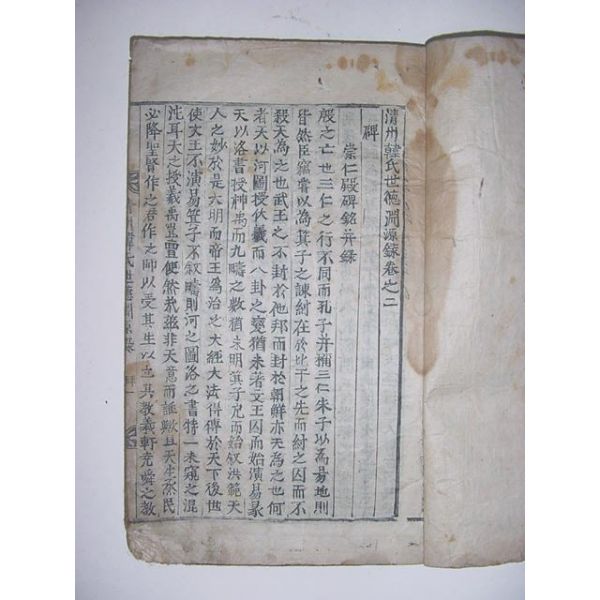 清州韓氏世德淵源錄卷之二
碑
崇仁殿碑銘并錄
殷之亡也三仁之行不同而孔子并稱三仁朱子以爲易地則
皆然臣竊嘗以爲箕子之諫紂在於比干之先而紂之囚而不
殺天爲之也武王之不封於他邦而封於朝鮮亦天爲之也何
者天以河圖授伏羲而八卦之變猶未著文王囚而始演易彖
天以洛書授神禹而九疇之數猶未明箕子囚而始叙洪範天
人之妙於是大明而帝王爲治之大經大法得傳於天下後世
使文王不演易箕子不叙疇則河之圖洛之書特一未窺之混
沌耳天之授羲禹置便然哉玆非天意而誰歟且天生烝民
必降聖賢作之君作之師以受其生以也其教羲軒堯舜之教
清州韓氏世德淵源錄